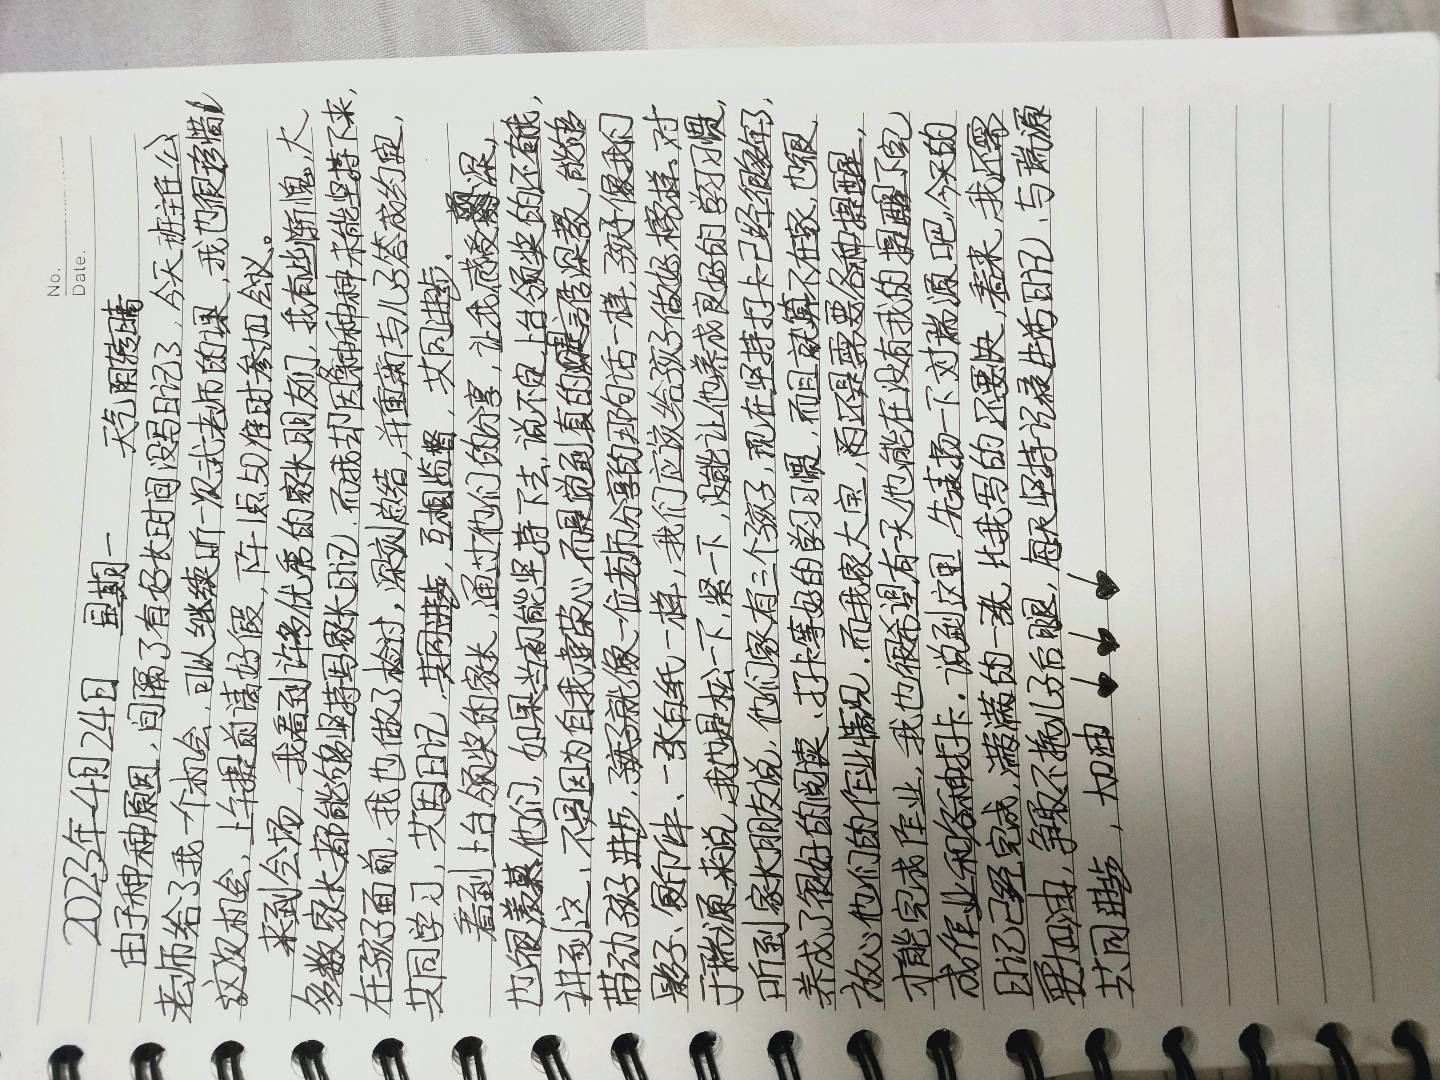 No.
Date.
2023年4月24日 星期一 天气阴转晴
由于种种原因，间隔了有好长时间没写日记了，今天班主任公
老师给了我一个机会，可以继续听一次武老师的课，我也很珍惜
这次机会，上午提前请好假，下午1点50准时参加会议。
来到会场，我看到许多优秀的家长朋友们，我有些惭愧，大
多数家长都能够坚持写家长日记，而我却因各种种种未能坚持下来，
在孩子面前，我也做了检讨，深刻总结，并重新与儿子答成约定，
共同学习，共因日记，共同进步，互相监督，共同进步。
看到上台领奖的家长，通过他们的分享，让我感受深，
也很羡慕他们，如果当初能坚持下去，说不定上台领奖的还有我，
讲到这，不是因为自我虚荣心，而是当到真的言传深教，能够
带动孩子进步，孩子就像一位老师分享的那句话一样，孩子像我的
影子、复印件、一张白纸一样，我们应该给孩子做好榜样。对
于瑞源来说，我也是松一下，紧一下，没能让他养成良好的学习习惯，
听到家长朋友说，他们家有三个孩子，现在坚持打卡已经很多年了，
养成了很好的阅读、打卡等好的学习习惯，而且就算不在家，也很
放心他们的作业情况，而我家大宝，两还是需要各种提醒，
才能完成作业，我也很希望有一天他能在没有我的提醒下完
成作业和各种打卡。说到这里，先表扬一下对瑞源吧，今天的
日记已经完成，满满的一张，比我写的还要快，看来，我还需
要加油，争取不拖儿子后腿，每天坚持记录生活日记，与瑞源
共同进步，大加油